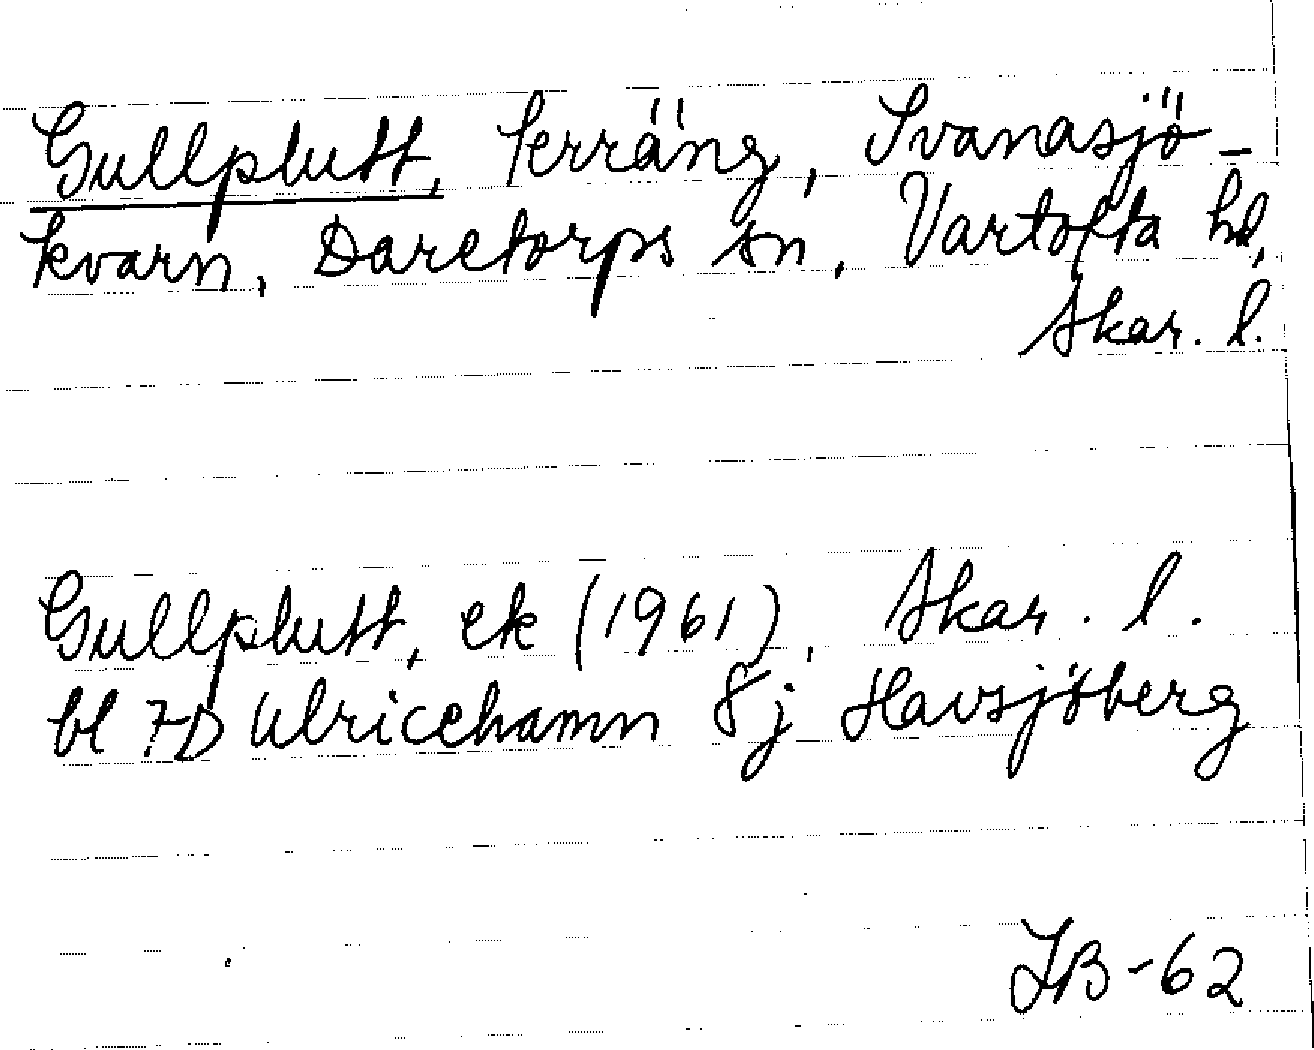 Gullplutt, terräng, Svanasjö-
kvarn, Daretorps sn, Vartofta hd,
Skar. l.
Gullplutt, ek (1961), Skar. l.
bl 7D Ulricehamn 8j Havsjöberg
IB-62